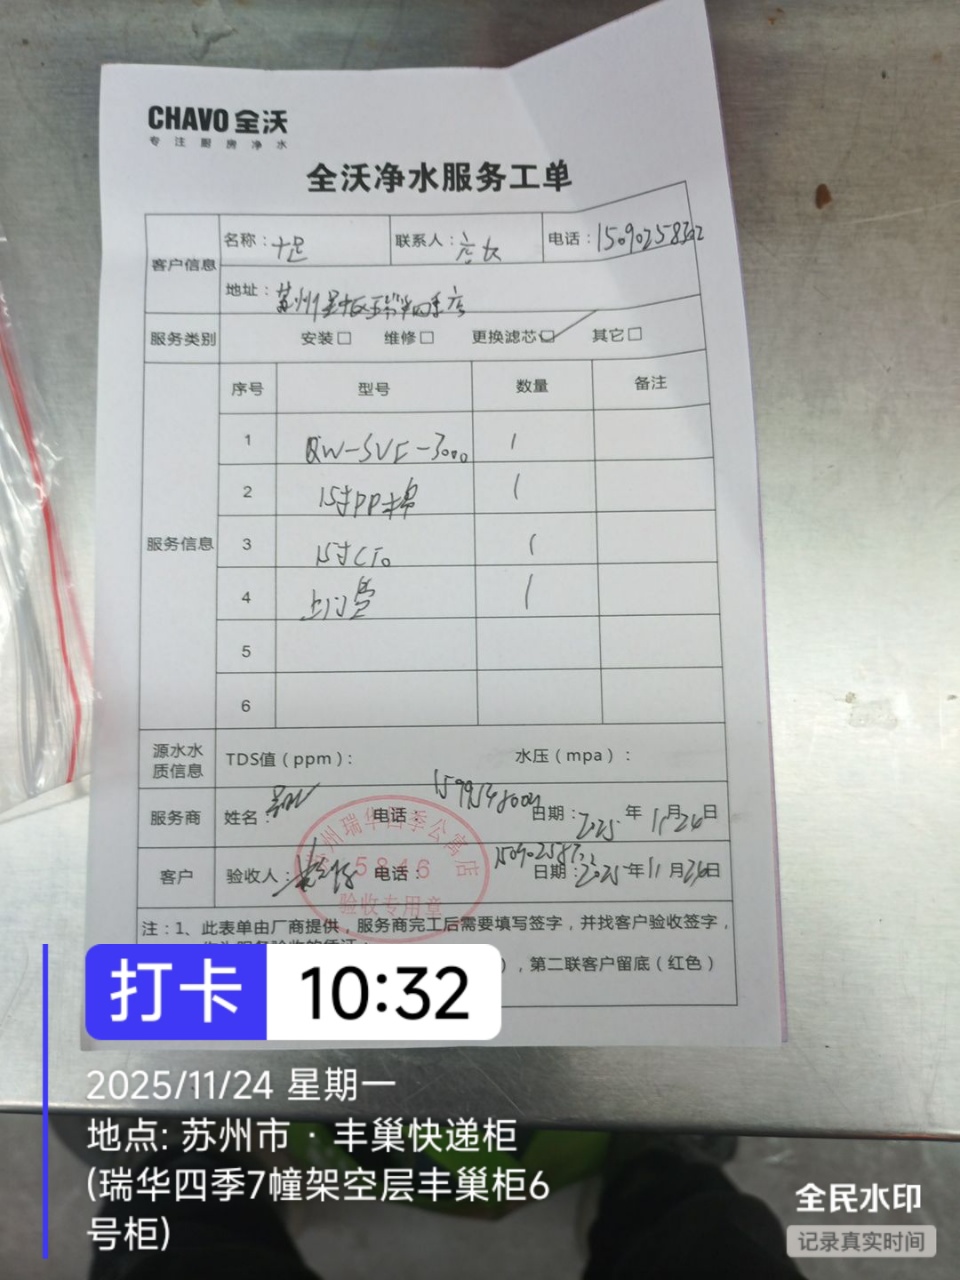 CHAVO 全沃
专注厨房净水
全沃净水服务工单
客户信息
名称：十足
联系人：
电话：
地址：苏州
服务类别
安装□ 维修□ 更换滤芯□ 其它□
服务信息
序号 型号 数量 备注
1 QW-SVC-3000 1
2 15寸PP棉 1
3 15寸CTO 1
4 上门费 1
5
6
源水水质信息
TDS值（ppm）： 水压（mpa）：
服务商
姓名： 电话： 日期：2025年11月24日
客户
验收人： 电话： 日期：2025年11月24日
苏州瑞华四季公寓店
5846
验收专用章
注：1、此表单由厂商提供，服务商完工后需要填写签字，并找客户验收签字，
），第二联客户留底（红色）
打卡 10:32
2025/11/24 星期一
地点: 苏州市 · 丰巢快递柜
(瑞华四季7幢架空层丰巢柜6
号柜)
全民水印
记录真实时间